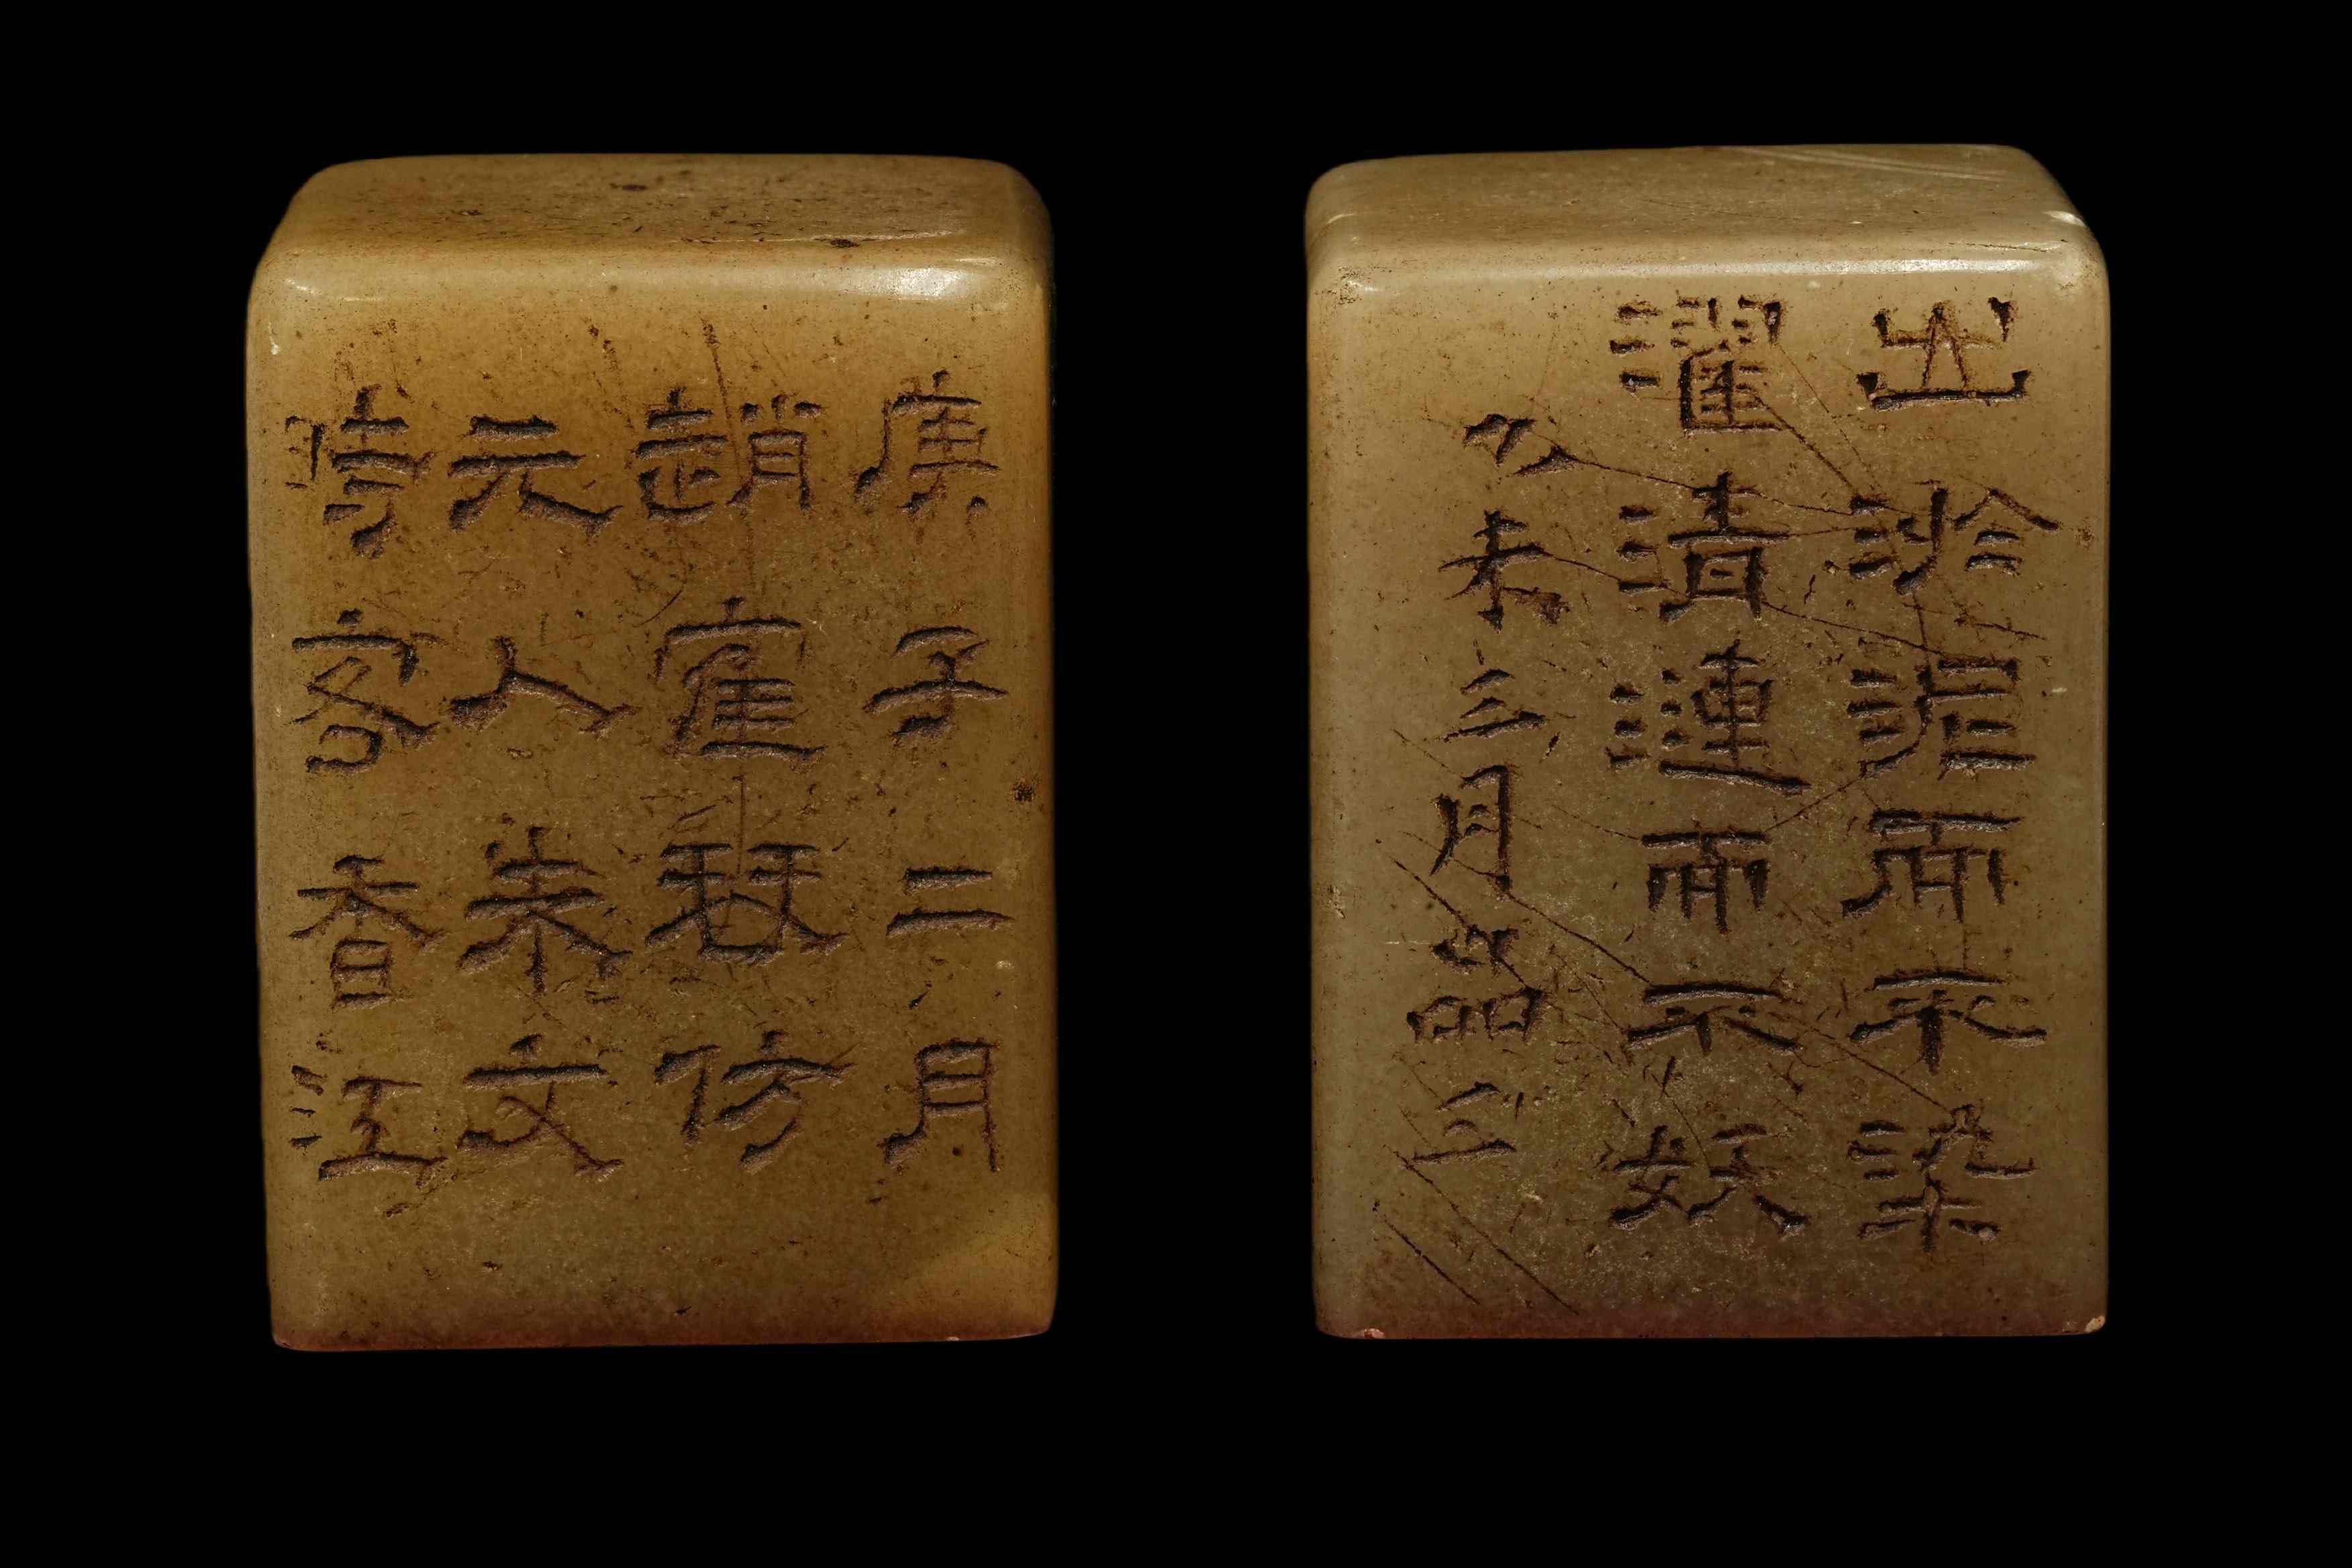 庚子二月
趙寉珡仿
元人朱文
時客香江
出淤泥而不染
濯清漣而不妖
未三月品